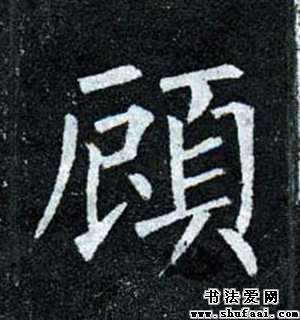 顧
书法爱网
www.shufaai.com